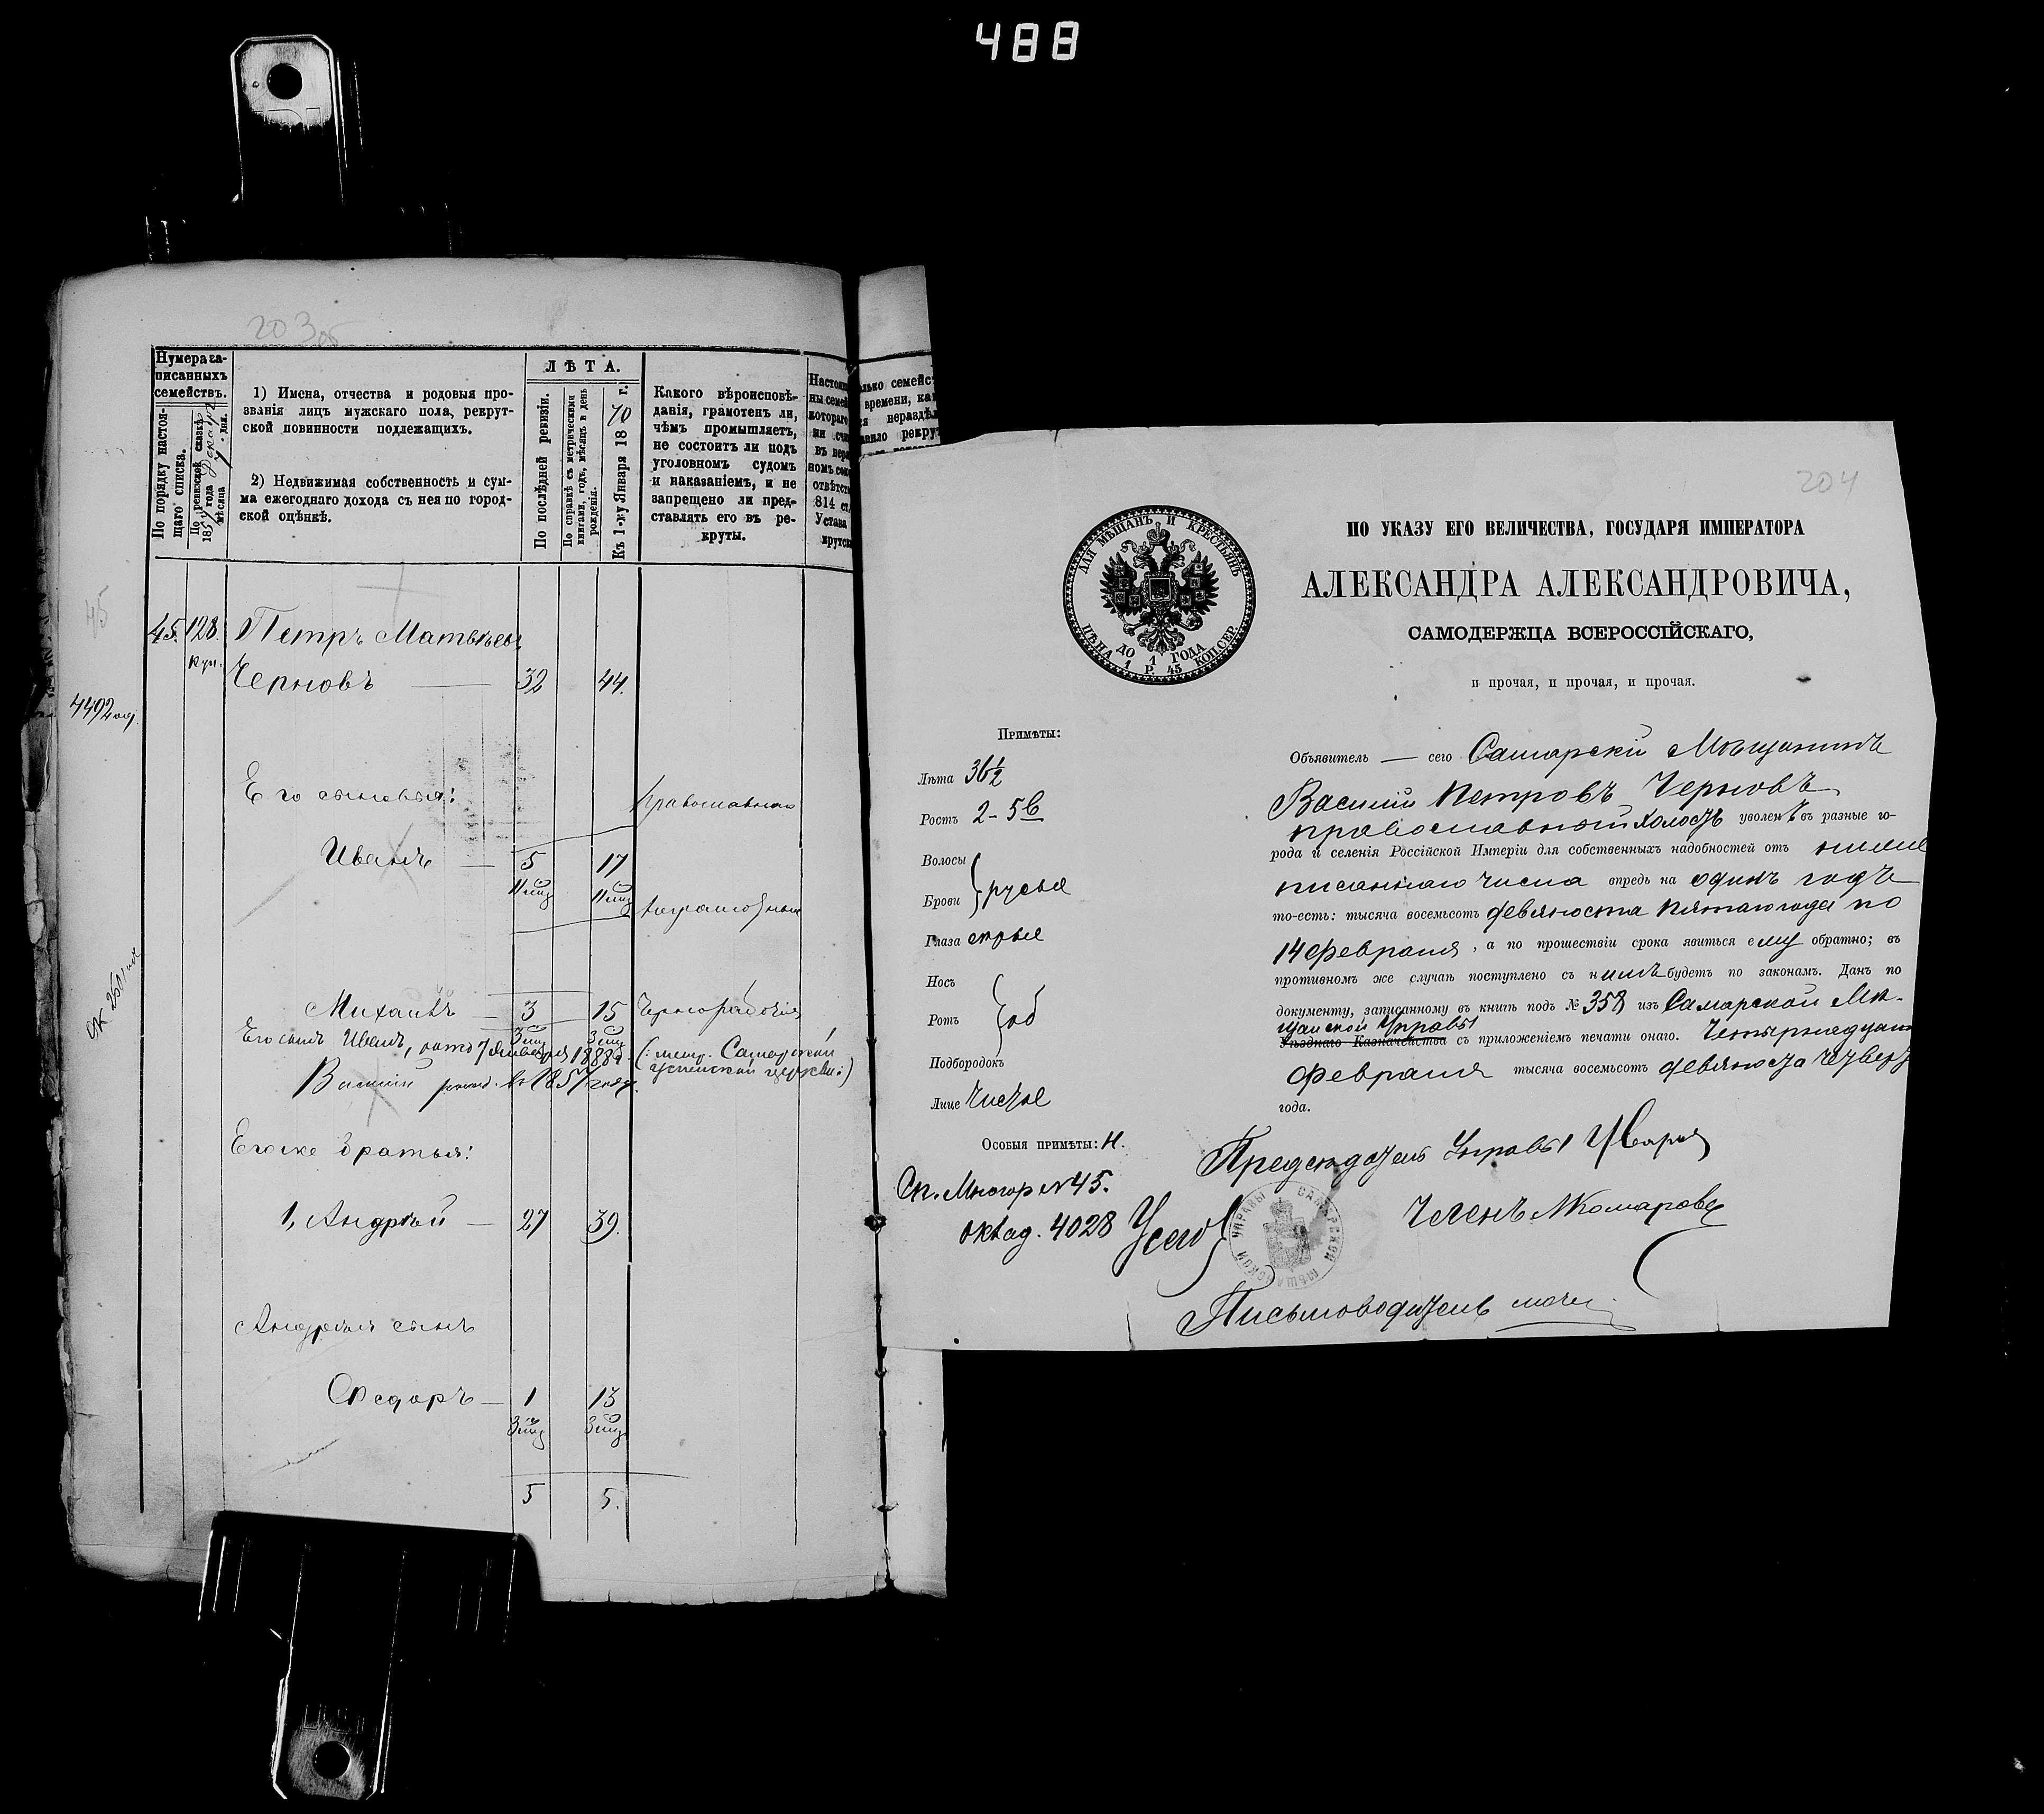 488
203 об
Нумера за-
писанныхъ
семействъ.
По порядку настоя-
щаго списка.
По ревизской сказкѣ
185 года
мѣсяца дня.
1) Имена, отчества и родовыя про-
званія лицъ мужскаго пола, рекрут-
ской повинности подлежащихъ.
2) Недвижимая собственность и сум-
ма ежегоднаго дохода съ нея по город-
ской оцѣнкѣ.
ЛѢТА.
По послѣдней ревизіи.
По справкѣ съ метрическими
книгами, годъ, мѣсяцъ и день
рожденія.
Къ 1-му Января 1870 г.
Какого вѣроисповѣ-
данія, грамотенъ ли,
чѣмъ промышляетъ,
не состоитъ ли подъ
уголовномъ судомъ
и наказаніемъ, и не
запрещено ли пред-
ставлять его въ ре-
круты.
814 ст.
Устава
45
45. 128. Петръ Матвѣевъ
куп.
Черновъ — 32 44.
4492
Его сыновья: православнаго
Иванъ — 5 17
11 мц 11 мц
неграмотный
Михаилъ — 3 15 Чернорабочій
3 мц 3 мц
Его сынъ Иванъ, 7 января 1888 г. (: Самарской
церкви:)
Василій рожд. въ 1857 году
Его же братья:
1, Андрей — 27 39.
Андрея сынъ
Федоръ — 1 13
3 мц 3 мц
5 5.
204
ДЛЯ МѢЩАНЪ И КРЕСТЬЯНЪ
ДО 1 ГОДА
ЦѢНА 1 Р. 45 КОП. СЕР.
ПО УКАЗУ ЕГО ВЕЛИЧЕСТВА, ГОСУДАРЯ ИМПЕРАТОРА
АЛЕКСАНДРА АЛЕКСАНДРОВИЧА,
САМОДЕРЖЦА ВСЕРОССІЙСКАГО,
и прочая, и прочая, и прочая.
Примѣты:
Лѣта 36½
Ростъ 2-5 в
Волосы
Брови } русые
Глаза сѣрые
Носъ
Ротъ } об
Подбородокъ
Лице Чистое
Особыя примѣты: Н.
№ 45.
оклад. 4028
Объявитель — сего Самарскій Мѣщанинъ
Василій Петровъ Черновъ
православный холостъ уволенъ въ разные го-
рода и селенія Россійской Имперіи для собственныхъ надобностей отъ ниже
писаннаго числа впредь на одинъ годъ
то-есть: тысяча восемьсотъ девяноста пятаго года по
14 февраля, а по прошествіи срока явиться ему обратно; въ
противномъ же случаѣ поступлено съ нимъ будетъ по законамъ. Данъ по
документу, записанному въ книгѣ подъ № 358 изъ Самарской Мѣ-
щанской Управы
Уѣзднаго Казначейства съ приложеніемъ печати онаго. Четырнадцат
февраля тысяча восемьсотъ девяноста четверт
года.
Предсѣдатель Управы
Членъ Комаровъ
САМАРСКОЙ МѢЩАНСКОЙ УПРАВЫ
Письмоводитель